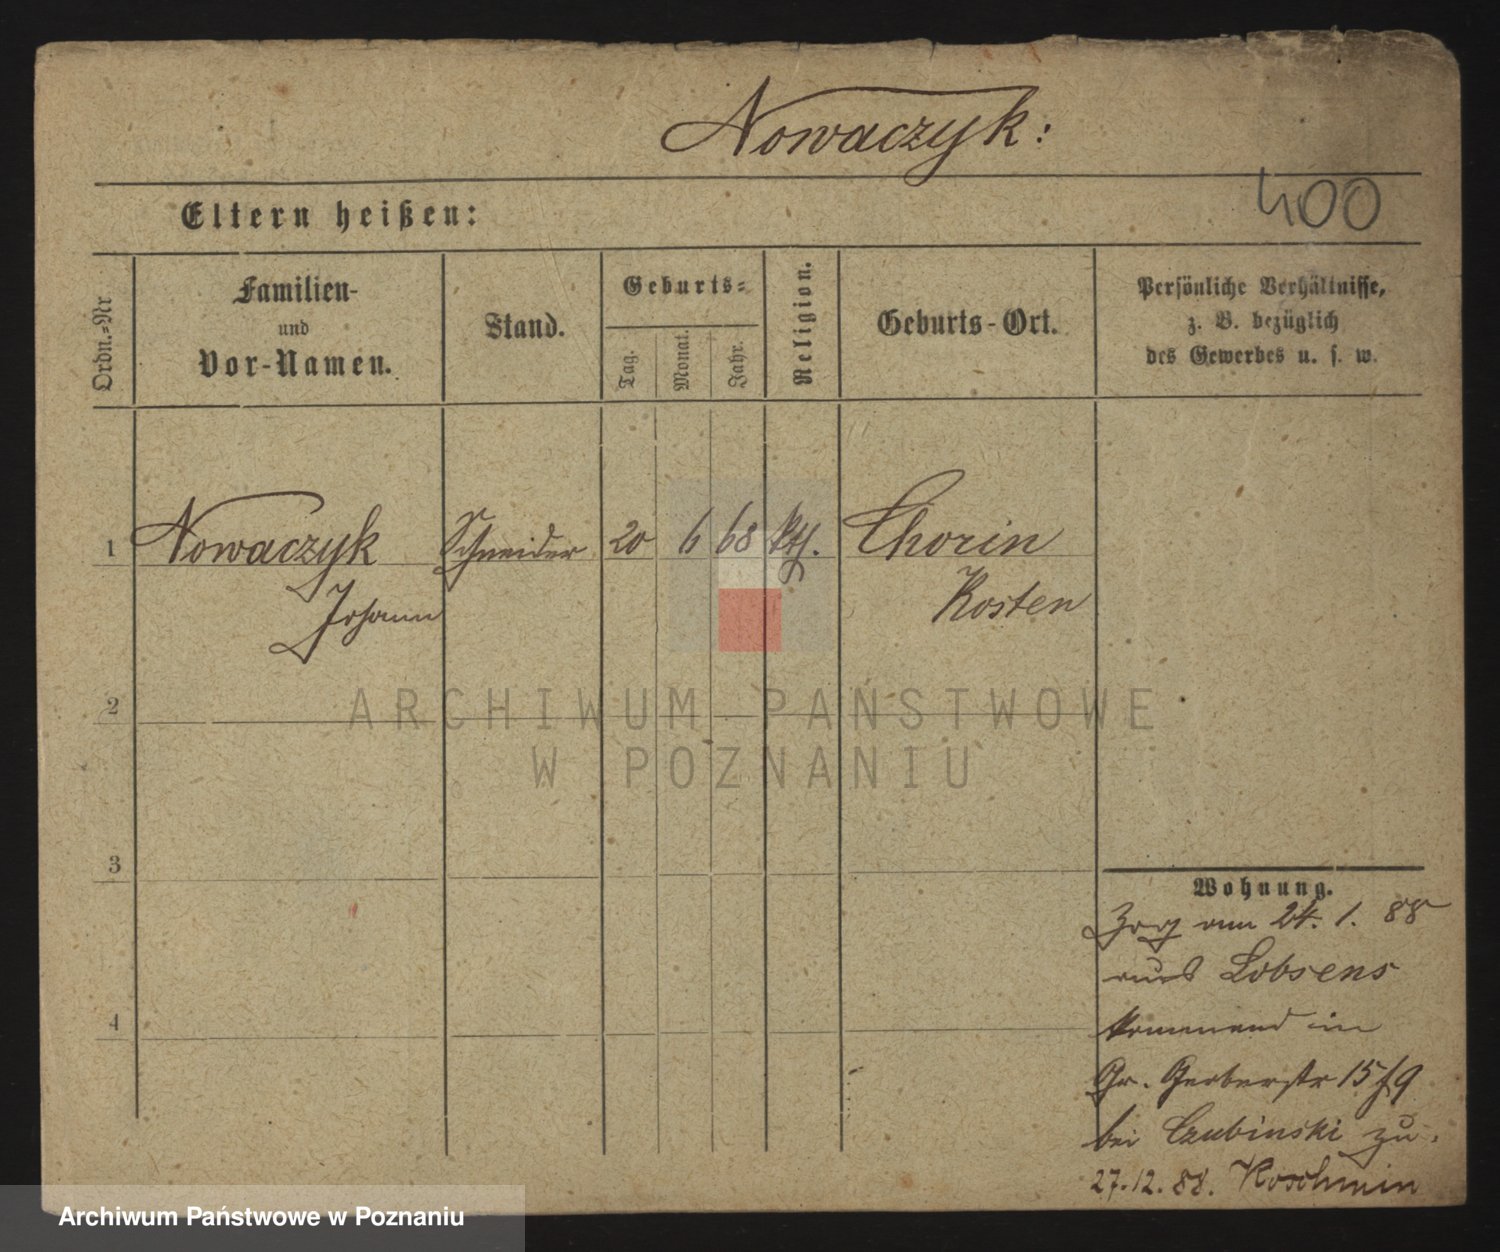 Nowaczyk:
400
Eltern heißen:
Ordn.-Nr
Familien-
und
Vor-Namen.
Stand.
Geburts-
Tag.
Monat.
Jahr.
Religion.
Geburts-Ort.
Persönliche Verhältnisse,
z. B. bezüglich
des Gewerbes u. s. w.
1 Nowaczyk Schneider 20 6 68 kth. Chorin
Johann Kosten
2
ARCHIWUM PAŃSTWOWE
W POZNANIU
3
Wohnung.
Zog am 24. 1. 88
aus Lobsens
kommend in
4
Gr. Gerberstr 15/9
bei Czubinski zu.
27.12.88. Koschmin
Archiwum Państwowe w Poznaniu